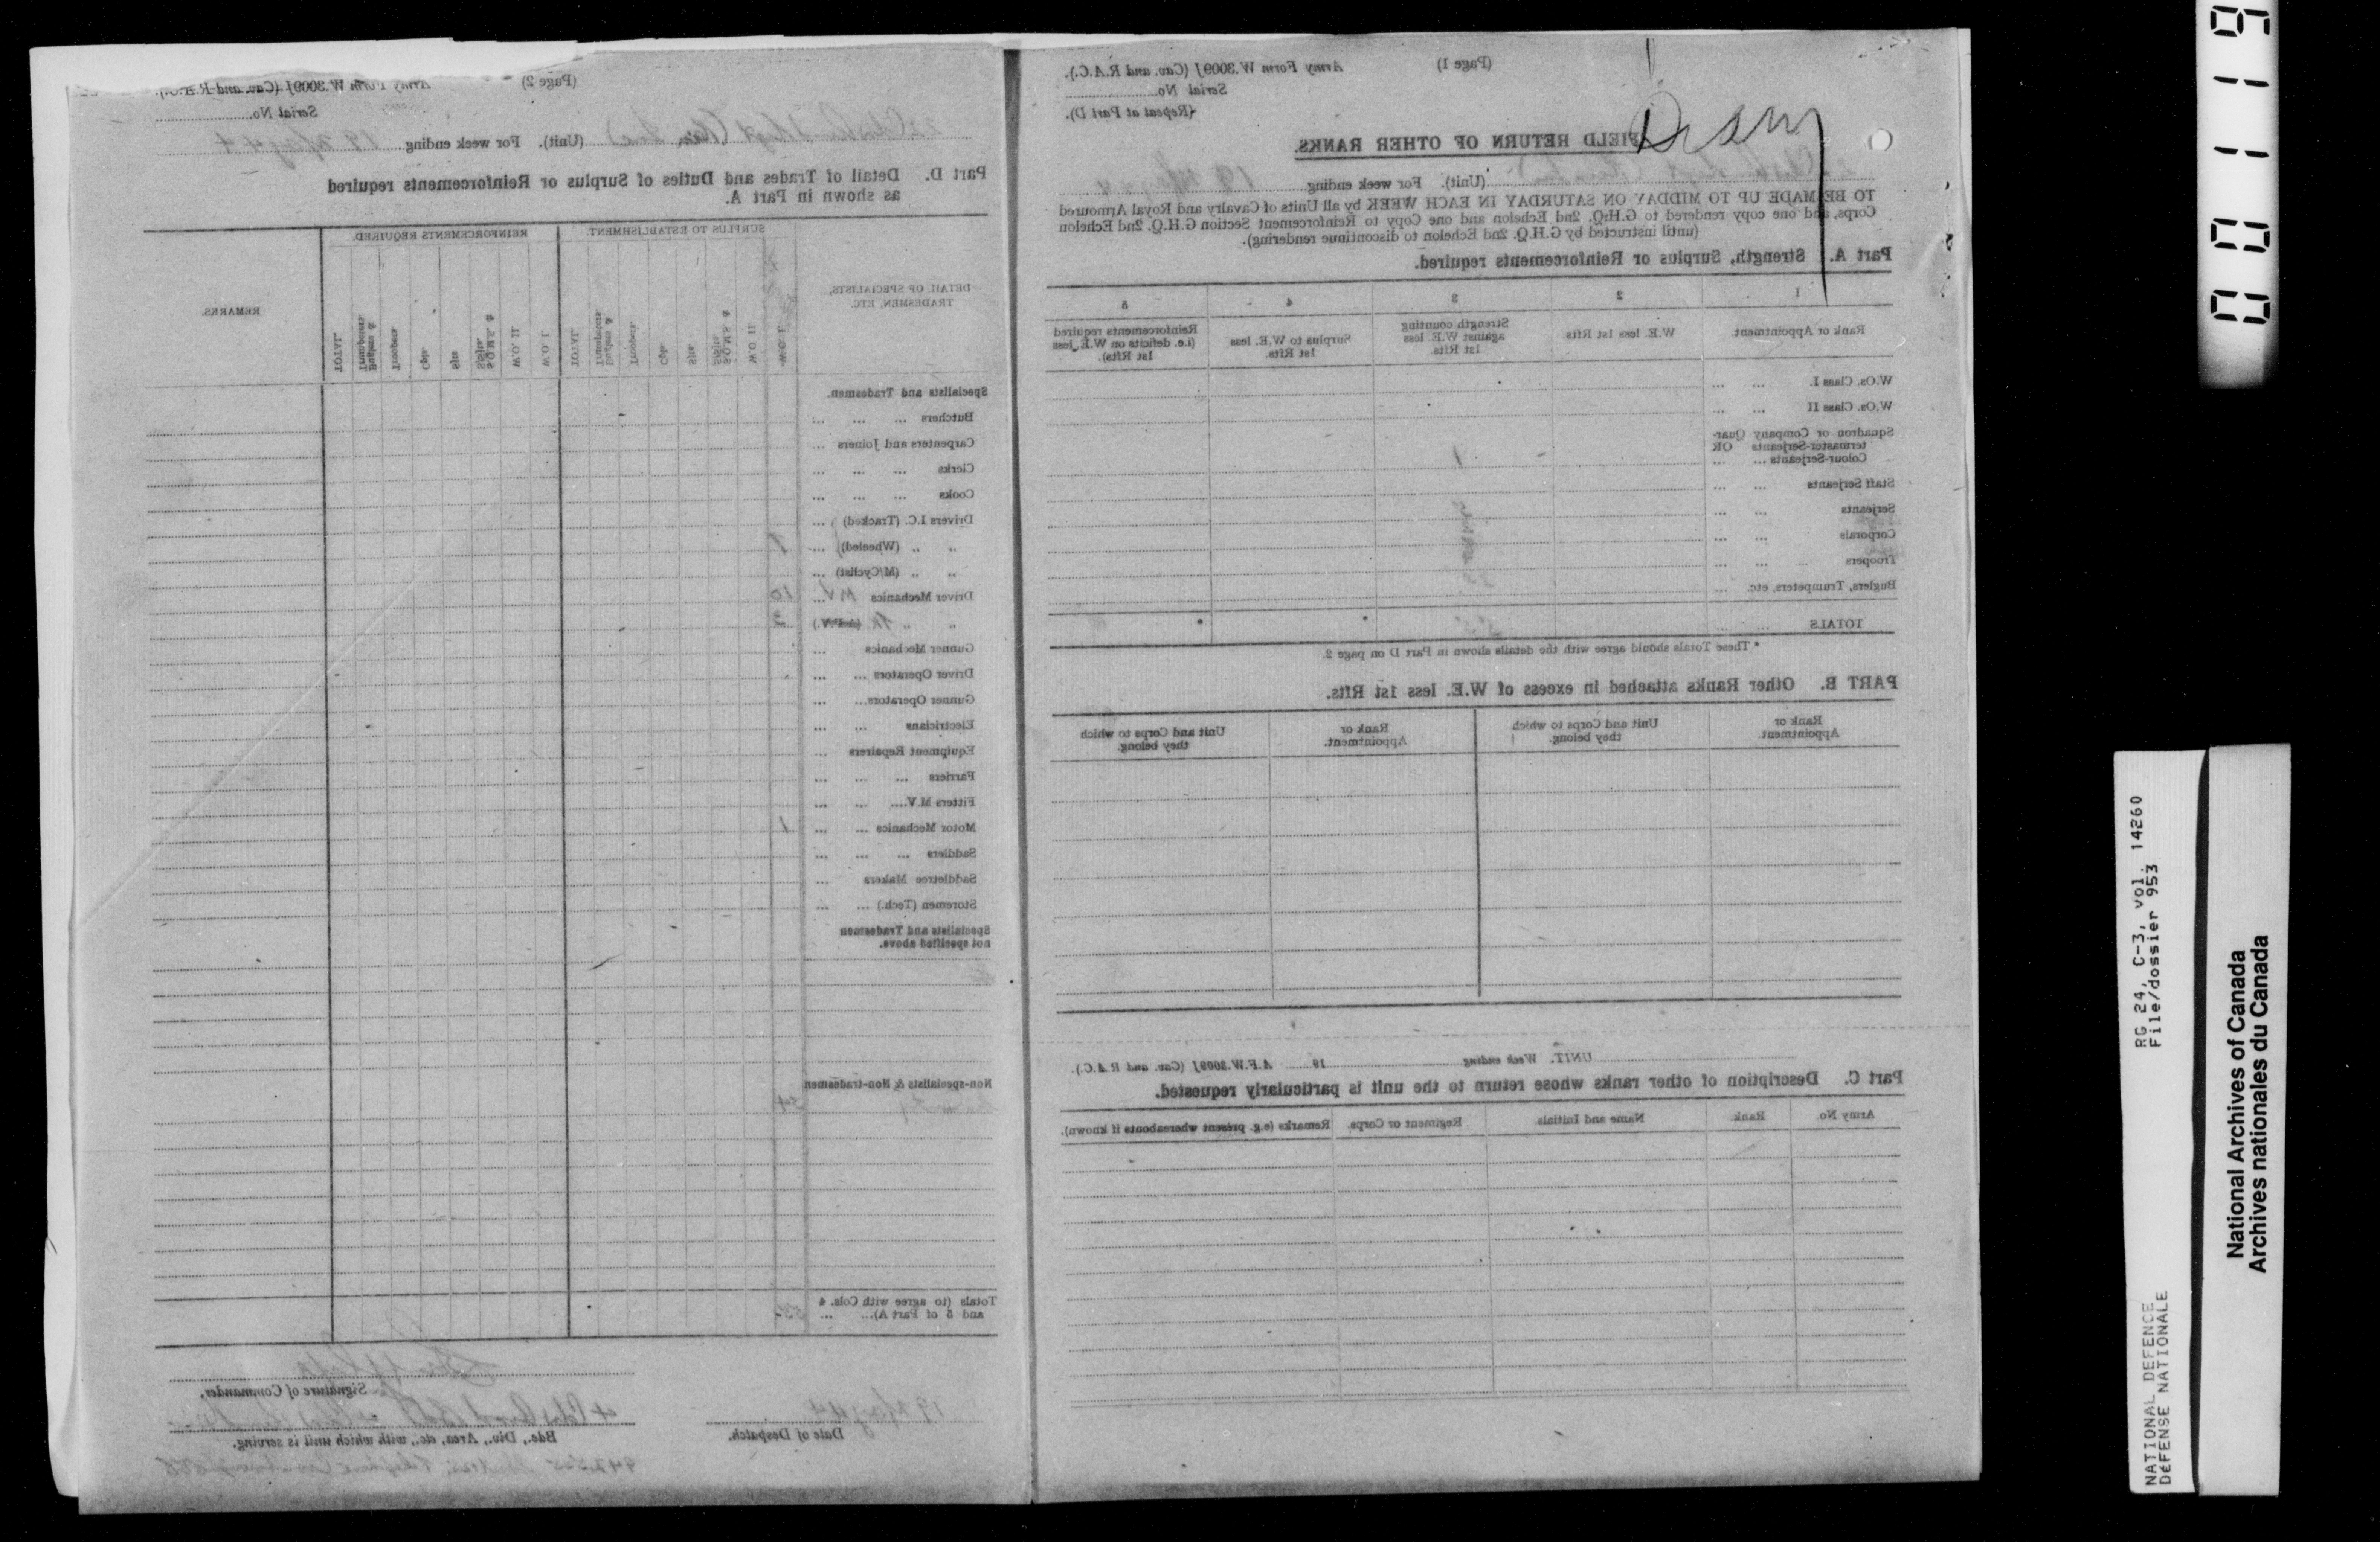 (Page 1)
Army Form W.3009J (Cav. and R.A.C.).
Serial No.
(Repeat at Part D).
FIELD RETURN OF OTHER RANKS.
(Unit). For week ending 19 May 44
TO BE MADE UP TO MIDDAY ON SATURDAY IN EACH WEEK by all Units of Cavalry and Royal Armoured
Corps, and one copy rendered to G.H.Q. 2nd Echelon and one Copy to Reinforcement Section G.H.Q. 2nd Echelon
(until instructed by G.H.Q. 2nd Echelon to discontinue rendering).
Part A. Strength, Surplus or Reinforcements required.
1 2 3 4 5
Rank or Appointment
W.E. less 1st Rfts
Strength counting against W.E. less 1st Rfts.
Surplus to W.E. less 1st Rfts.
Reinforcements required (i.e. deficits on W.E. less 1st Rfts).
W.Os. Class I. ... ...
W.Os. Class II ... ...
Squadron or Company Quar-
termaster-Serjeants OR
Colour-Serjeants ... ... 1
Staff Serjeants ... ...
Serjeants ... ...
Corporals ... ...
Troopers ... ...
Buglers, Trumpeters, etc. ...
TOTALS ... ...
* These Totals should agree with the details shown in Part D on page 2.
PART B. Other Ranks attached in excess of W.E. less 1st Rfts.
Rank or Appointment.
Unit and Corps to which they belong.
Rank or Appointment.
Unit and Corps to which they belong.
UNIT. Week ending 19 A.F.W.3009J (Cav. and R.A.C.).
Part C. Description of other ranks whose return to the unit is particularly requested.
Army No. Rank Name and Initials. Regiment or Corps. Remarks (e.g. present whereabouts if known).
(Page 2)
Army Form W.3009J (Cav. and R.A.C.).
Serial No.
(Unit). For week ending 19 May 44
Part D. Detail of Trades and Duties of Surplus or Reinforcements required
as shown in Part A.
DETAIL OF SPECIALISTS, TRADESMEN, ETC.
SURPLUS TO ESTABLISHMENT.
REINFORCEMENTS REQUIRED.
REMARKS.
W.O. I.
W.O. II
S.Q.M.S. & S/Sjts.
Sjts
Cpls.
Troopers.
Buglers & Trumpeters
TOTAL.
W.O. I.
W.O. II
S.Q.M.S. & S/Sjts.
Sjts
Cpls.
Troopers
Buglers & Trumpeters
TOTAL.
Specialists and Tradesmen.
Butchers ... ... ...
Carpenters and Joiners ...
Clerks ... ... ...
Cooks ... ... ...
Drivers I.C. (Tracked) ...
„ „ (Wheeled) ... 1
„ „ (M/Cyclist) ...
Driver Mechanics ... 10
„ „ (A.F.V.) 3
Gunner Mechanics ...
Driver Operators ... ...
Gunner Operators... ...
Electricians ... ...
Equipment Repairers ...
Farriers ... ... ...
Fitters M.V.... ... ...
Motor Mechanics ... ... 1
Saddlers ... ... ...
Saddletree Makers ...
Storemen (Tech.) ... ...
Specialists and Tradesmen
not specified above.
Non-specialists & Non-tradesmen
Totals (to agree with Cols. 4
and 5 of Part A)... ...
Signature of Commander.
19 May 44
Date of Despatch.
Bde., Div., Area, etc., with which unit is serving.
0 0 1 1 9
RG 24, C-3, vol. 14260
File/dossier 953
NATIONAL DEFENCE
DÉFENSE NATIONALE
National Archives of Canada
Archives nationales du Canada